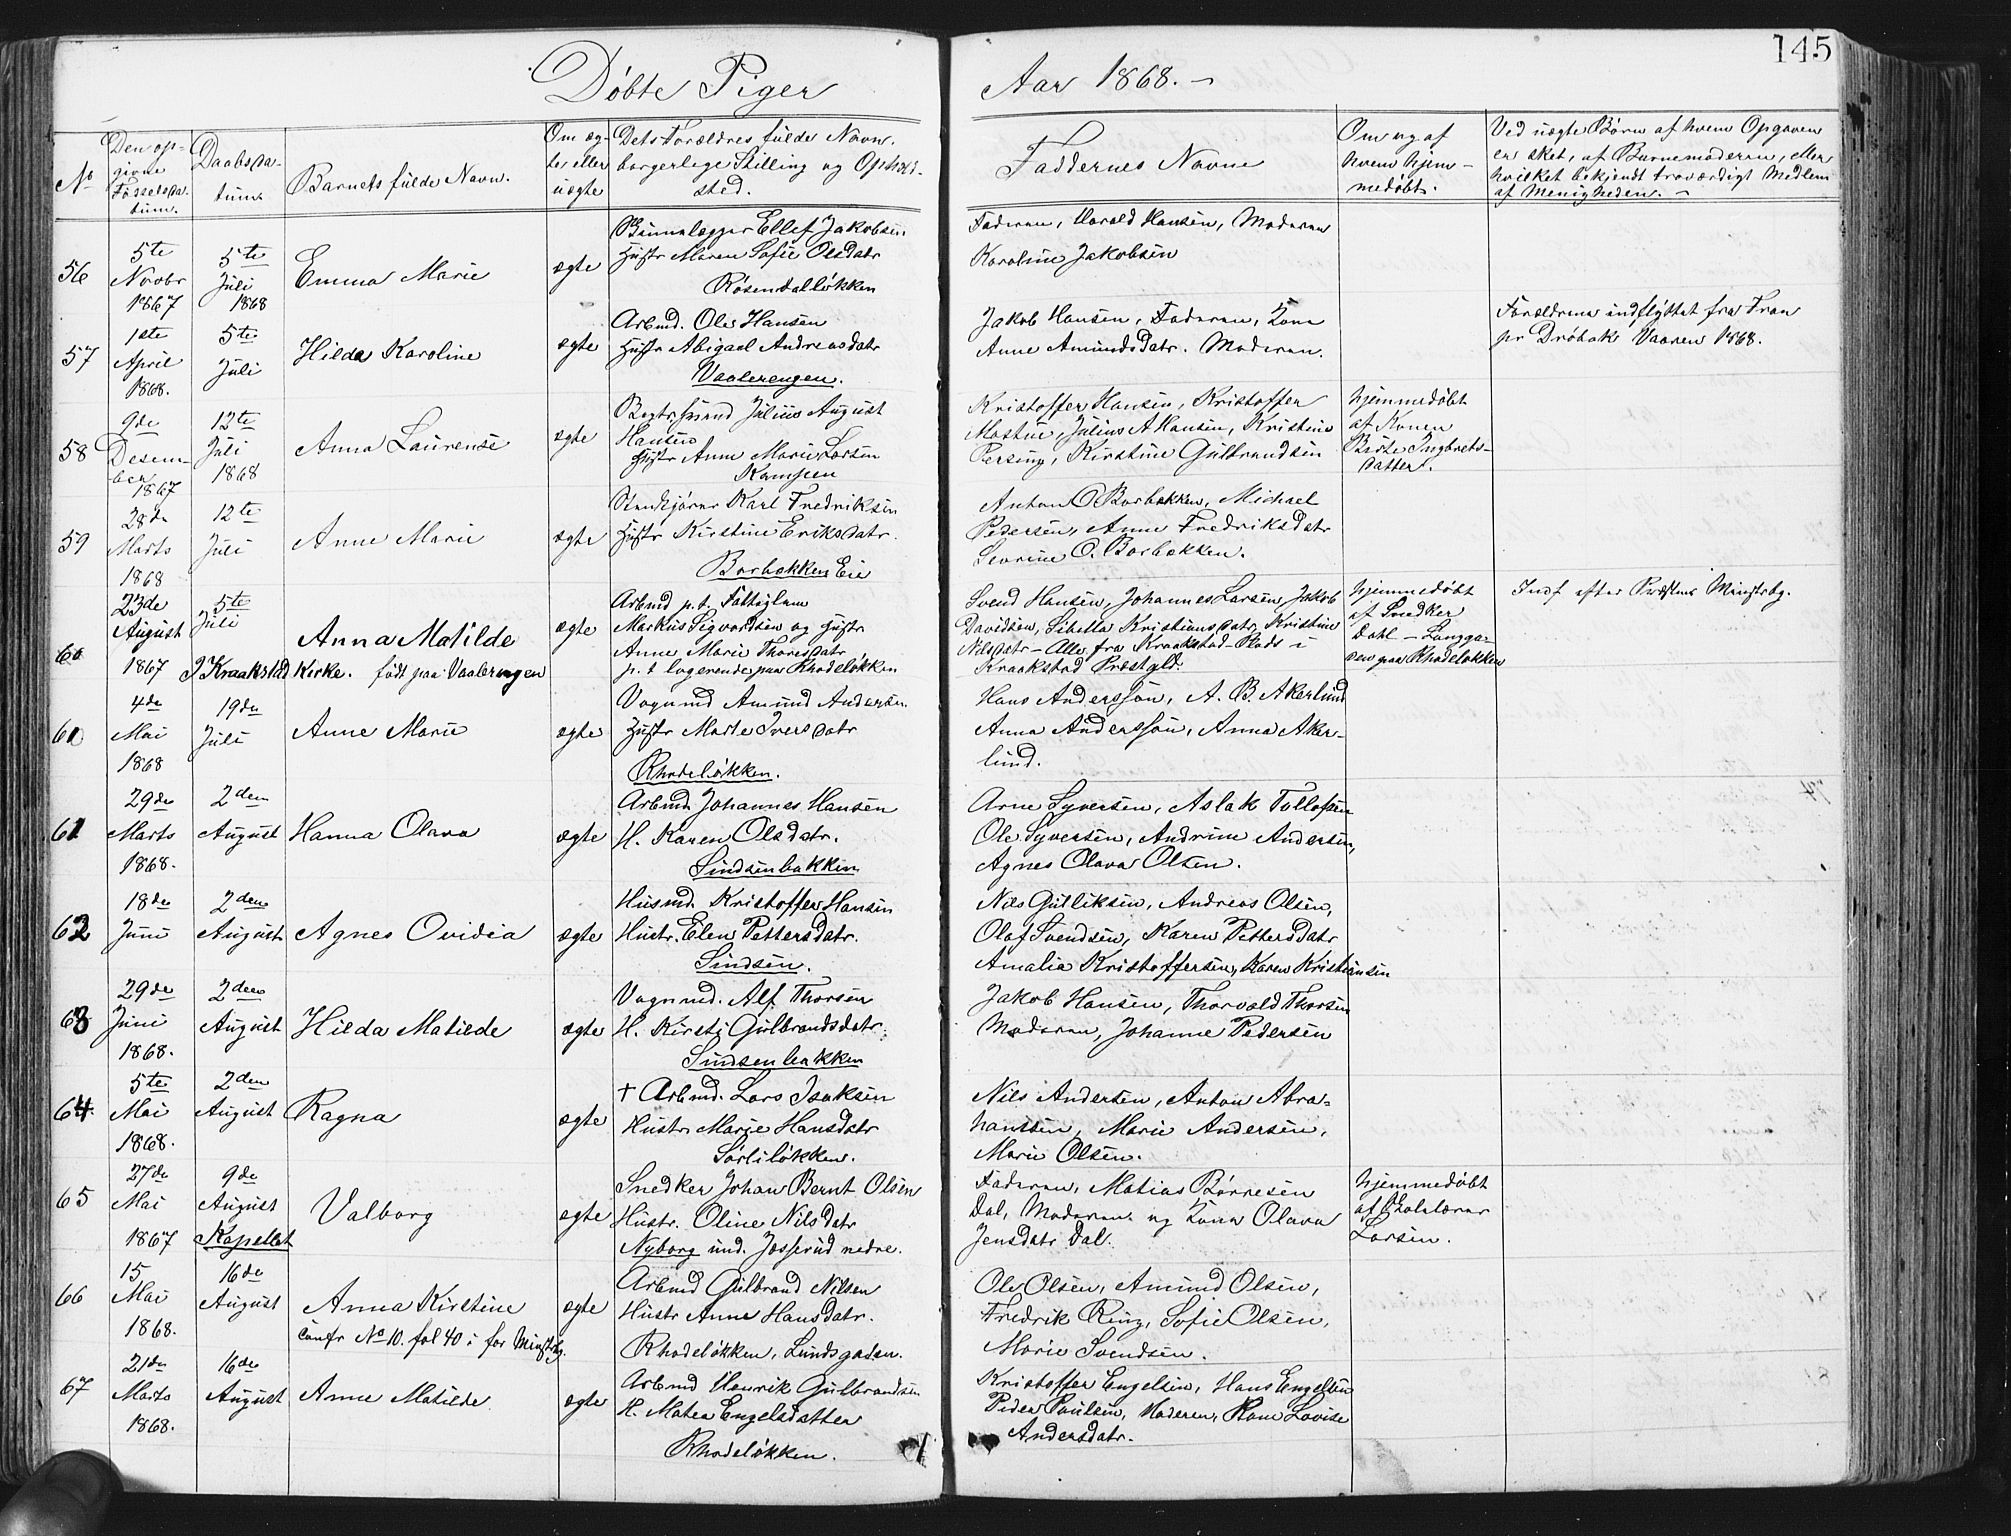 145
Døbte Piger Aar 1868. -
No
Den op-
givne
Fødselsda-
tum.
Daabsda-
tum.
Barnets fulde Navn.
Om æg-
te eller
uægte
Dets Forældres fulde Navn.
borgerlige Stilling og Opholds-
sted.
Faddernes Navne
Om og af
hvem hjem-
medøbt.
Ved uægte Børn af hvem Opgaven
er sket, af Barnemoderen, eller
hvilket bekjendt troværdigt Medlem
af Menigheden. -
56
5te
Novbr
1867
5te
Juli
1868
Emma Marie
ægte
Ellef Jakobsen.
Hustr Maren Sofie Olsdatr
Rosendalløkken
Faderen, Harald Hansen, Moderen
Karoline Jakobsen
57
1ste
April
1868.
5te
Juli
Hilda Karoline
ægte
Arbmd. Ole Hansen
Hustr Abigael Andreasdatr
Vaalerengen.
Jakob Hansen, Faderen, Kone
Anne Amundsdatr. Moderen.
Forældrene indflyttet fra Fron
pr Drøbak Vaaren 1868.
58
9de
Desem-
ber
1867
12te
Juli
1868
Anna Laurense
ægte
Julius August
Hansen
Hustr Anne Marie Larsen
Kampen
Kristoffer Hansen, Kristoffer
Mastue, Julius A Hansen, Kristine
Persing, Kirstine Gulbrandsen
hjemmedøbt
af Konen
Birte Ingbrets-
datter.
59
28de
Marts
1868
12te
Juli
Anne Marie
ægte
Stenkjører Karl Fredriksen
Hustr Kirstine Eriksdatr.
Borbakken Eie
Anton O Borbakken, Michael
Pedersen, Anne Fredriksdatr
Sevrine O. Borbakken.
60
23de
August
1867
5te
Juli
Anna Matilde
I Kraakstad Kirke. født paa Vaalerengen
ægte
Arbmd p.t. Fattiglem
Markus Sigvardsen og Hustr
Anne Marie Thoresdatr
p.t logerende paa Rhodeløkken
Svend Hansen, Johannes Larsen, Jakob
Davidsen, Sibella Kristiansdatr, Kristine
Nilsdatr - Alle fra Kraakstad-Plads i
Kraakstad Præstgld.
hjemmedøbt
af Snedker
Dahl - Langga-
den paa Rhodeløkken
Indf efter Præstens Ministbg.
61
4de
Mai
1868
19de
Juli
Anne Marie
ægte
Vognmd Amund Andersen.
Hustr Marte Iversdatr
Rhodeløkken.
Hans Anderssøn, A. B. Akerlund
Anna Anderssøn, Anna Aker-
lund.
61
29de
Marts
1868.
2den
August
Hanna Olava
ægte
Arbmd Johannes Hansen
H. Karen Olsdatr.
Sindsenbakken
Arne Syversen, Aslak Tollofsen
Ole Syversen, Andrine Andersen,
Agnes Olava Olsen.
62
18de
Juni
2den
August
Agnes Ovidia
ægte
Husmd Kristoffer Hansen
Hustr. Elen Pettersdatr.
Sindsen.
Nils Gulliksen, Andreas Olsen,
Olaf Svendsen, Karen Pettersdatr
Amalia Kristoffersen, Karen Kristiansen
63
29de
Juni
1868.
2den
August
Hilda Matilde
ægte
Vognmd. Alf Thorsen
H. Kirsti Gulbrandsdatr.
Sindsenbakken
Jakob Hansen, Thorvald Thorsen
Moderen, Johanne Pedersen
64.
5te
Mai
1868.
2den
August
Ragna
ægte
+ Arbmd. Lars Isaksen
Hustr Marie Hansdatr
Sørliløkken.
Nils Andersen, Anton Abra-
hamsen, Marie Andersen,
Marie Olsen.
65
27de
Mai
1867
9de
August
Kapellet
Valborg
ægte
Snedker Johan Bernt Olsen
Hustr. Oline Nilsdatr
Nyborg und. Jøsserud nedre.
Faderen, Matias Børresen
Dal, Moderen og Kone Olava
Jensdatr Dal.
hjemmedøbt
af Skolelærer
Larsen.
66
15
Mai
1868.
16de
August
Anna Kirstine
confr No 10. fol 40 i for Minstbg.
ægte
Arbmd Gulbrand Nilsen
Hustr Anne Hansdatr.
Rhodeløkken, Lundsgaden.
Ole Olsen, Amund Olsen,
Fredrik Ring, Sofie Olsen,
Marie Svendsen.
67
21de
Marts
1868.
16de
August
Anne Matilde
ægte
Arbmd Henrik Gulbrandsen
H. Matea Engelsdatter
Rhodeløkken.
Kristoffer Engelsen, Hans Engelsen
Peder Paulsen, Moderen, Kone Lovise
Andersdatr.